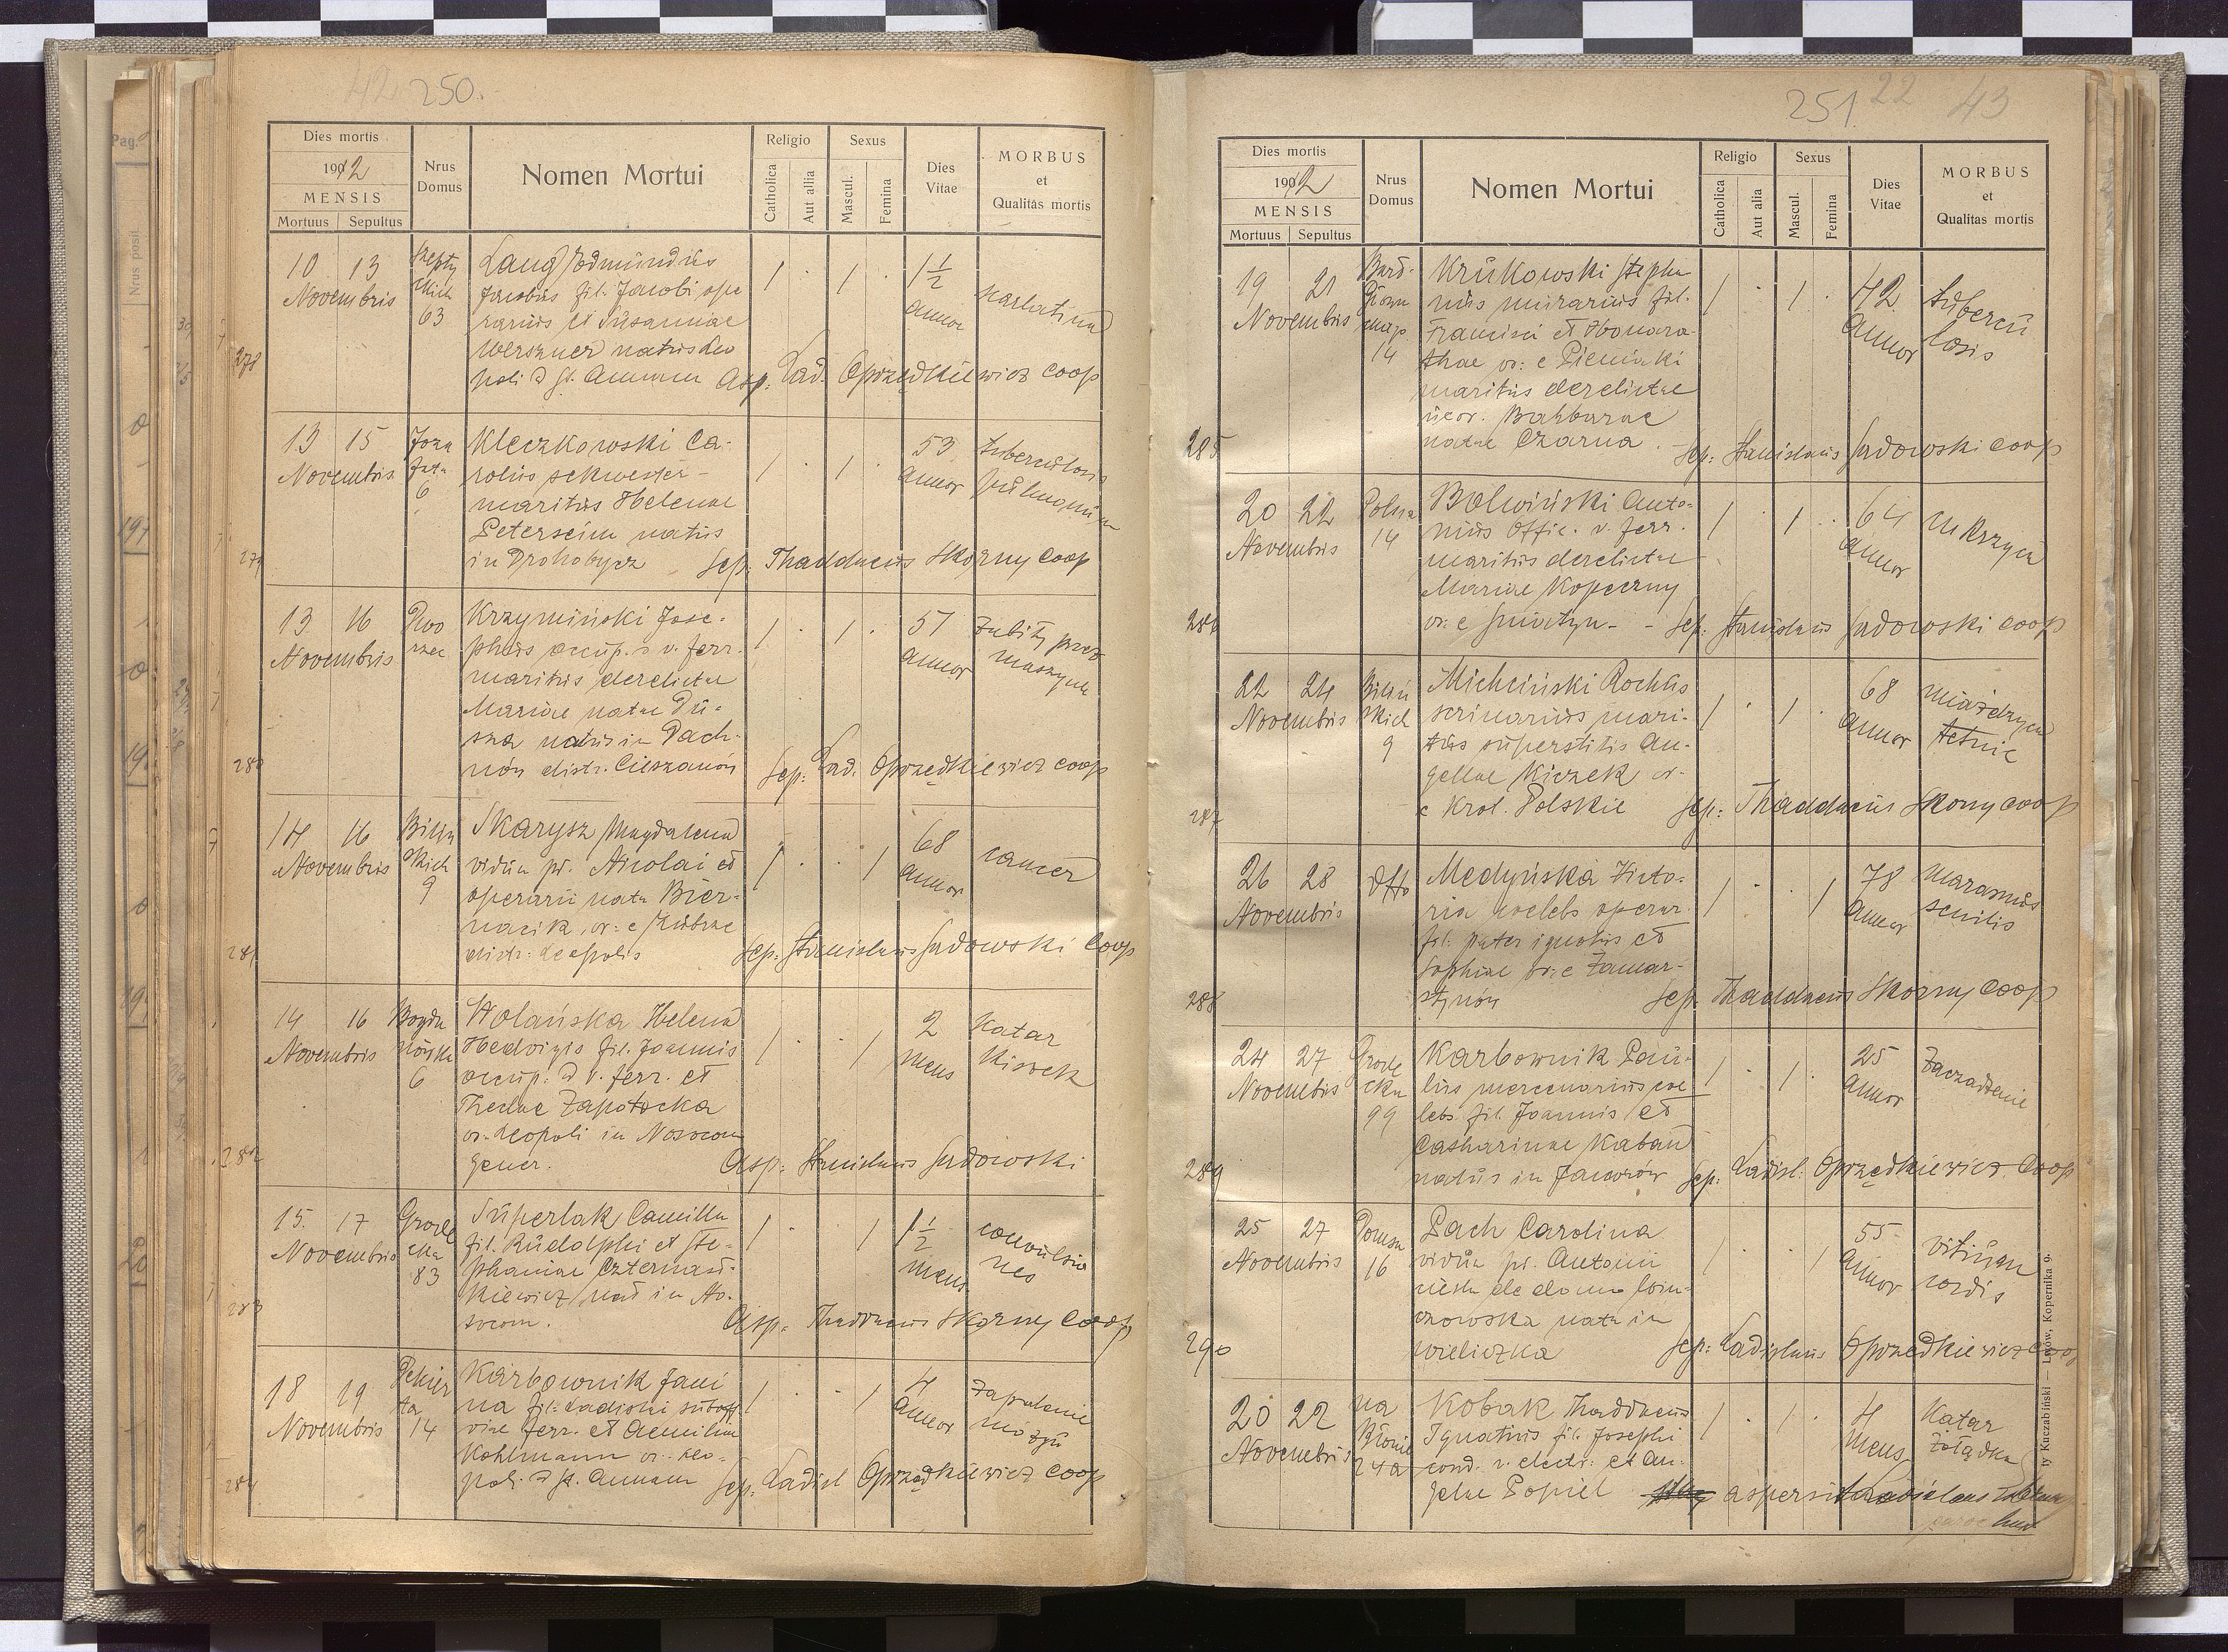 42 250.
Dies mortis
1912
MENSIS
Mortuus Sepultus
Nrus Domus
Nomen Mortui
Religio
Catholica
Aut alia
Sexus
Mascul.
Femina
Dies Vitae
MORBUS
et
Qualitas mortis
278
10 13
Novembris
63
Lang Edmundus
Jacobus fil. Jacobi ope
rarius et Susannae
Werszner natus Leo
poli ad St. Annam Asp: Lad. Oprzędkiewicz coop
1 . 1 .
1 1/2
annor
skarlatina
279
13 15
Novembris
6
Kleczkowski Ca-
rolus sekwester
maritus Helenae
Peterseim natus
in Drohobycz Sep: Thaddaeus Skorny Coop
1 . 1 .
53
annor
tuberculosis
pulmonum
280
13 16
Novembris
Dwo
rzec
Krzymiński Jose-
phus occup. a v. ferr.
maritus derelictae
Mariae natae Du-
sza natus in Dach-
nów distr. Cieszanów Sep: Lad. Oprzędkiewicz coop
1 . 1 .
51
annor
zabity przez
maszynę
281
14 16
Novembris
Biliń
skich
9
Skarysz Magdalena
vidua p. Nicolai
operarii nata Bier-
nacik, or: e
distr. Leopolis Sep: Stanislaus Sadowski Coop
1 . . 1
68
annor
cancer
282
14 16
Novembris
Bogda
nówki
6
Wolańska Helena
Hedvigis fil. Joannis
occup. a v. ferr. et
Theclae Zapotocka
or. Leopoli in Nosocom
gener. Asp: Stanislaus Sadowski
1 . . 1
2
mens
Katar
Kiszek
283
15 17
Novembris
Grode
cka
83
Superlak Camilla
fil. Rudolphi et Ste-
phaniae
kiewicz nat in No-
socom. Asp: Thaddaeus Skorny Coop
1 . . 1
1 1/2
mens
convulsio
nes
284
18 19
Novembris
14
Karbownik Jani
na fil. Ladislai suboff
viae ferr. et Aemiliae
Kohlmann or. Leo-
poli ad St. Annam Sep: Ladisl Oprzędkiewicz coop
1 . . 1
4
annor
Zapalenie
mózgu
251. 22 43
Dies mortis
1912
MENSIS
Mortuus Sepultus
Nrus Domus
Nomen Mortui
Religio
Catholica
Aut alia
Sexus
Mascul.
Femina
Dies Vitae
MORBUS
et
Qualitas mortis
285
19 21
Novembris
14
Krukowski Stepha
nus murarius fil.
Francisci et Honora-
thae or: e Pieniaki
maritus derelictae
uxor. Barbarae
natae Czarna Sep: Stanislaus Sadowski coop
1 . 1 .
42
annor
tubercu
losis
286
20 22
Novembris
Polna
14
Bolwiński Anto-
nius Offic. v. ferr.
maritus derelictae
Mariae Kopeczny
or: e Sniatyn - Sep: Stanislaus Sadowski coop
1 . 1 .
64
annor
287
22 24
Novembris
Biliń
skich
9
Michciński Rochus
scrinarius mari-
tus superstitis An-
gelae Kiczek or-
e Król. Polskie Sep: Thaddaeus Skorny coop
1 . 1 .
68
annor
miażdżyca
tetnic
288
26 28
Novembris
dtto
Medyńska Victo-
ria coelebs operar.
fil. pater ignotus et
Sophiae or: e Zamar-
stynów Sep. Thaddaeus Skorny Coop
1 . . 1
78
annor
Marasmus
senilis
289
24 27
Novembris
Grode
cka
99
Karbownik Pau-
lus mercenarius coe
lebs fil. Joannis et
Catharinae Kaban
natus in Jaworów Sep: Ladisl. Oprzędkiewicz Coop
1 . 1 .
25
annor
Zaczadzenie
290
25 27
Novembris
16
Pach Carolina
vidua p. Antonii
nata in
Wieliczka Sep: Ladislaus Oprzędkiewicz coop
1 . . 1
55
annor
vitium
cordis
20 22
Novembris
na
Błonie
24a
Kobak Thaddaeus
Ignatius fil. Josephi
cond. v. electr. et An-
gelae Popiel aspersit Ladislaus
1 . 1 .
4
mens
Katar
żołądka
Kuczabiński — Lwów, Kopernika 9.